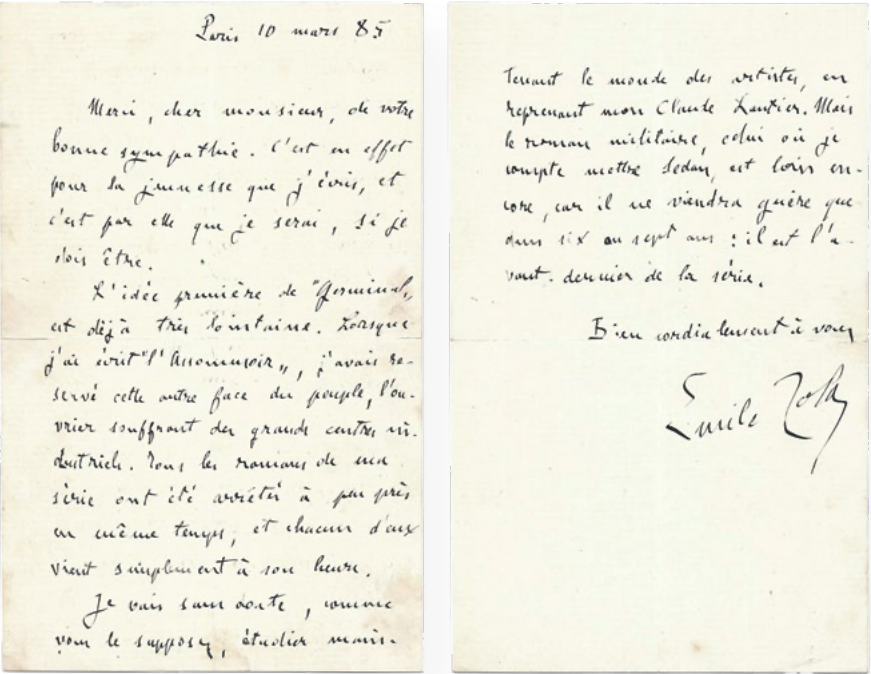 Paris 10 mars 85
Merci, cher monsieur, de votre
bonne sympathie. C'est en effet
pour la jeunesse que j'écris, et
c'est par elle que je serai, si je
dois être.
L'idée première de "Germinal„
est déjà très lointaine. Lorsque
j'ai écrit "l'Assommoir„, j'avais ré-
servé cette autre face du peuple, l'ou-
vrier souffrant des grands centres in-
dustriels. Tous les romans de ma
série ont été arrêtés à peu près
en même temps, et chacun d'eux
vient simplement à son heure.
Je vais sans doute, comme
vous le supposez, étudier main-
tenant le monde des artistes, en
reprenant mon Claude Lantier. Mais
le roman militaire, celui où je
compte mettre Sedan, est loin en-
core, car il ne viendra guère que
dans six ou sept ans : il est l'a-
vant-dernier de la série.
Bien cordialement à vous
Emile Zola